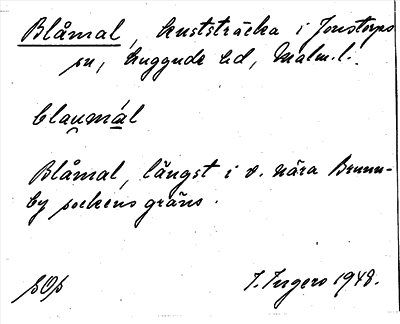 Blåmal, kuststräcka i Jonstorps
sn, Luggude hd, Malm.l.
blau̯mál
Blåmal, längst i v. nära Brunn-
by sockens gräns.
sOp
I. Ingers 1948.